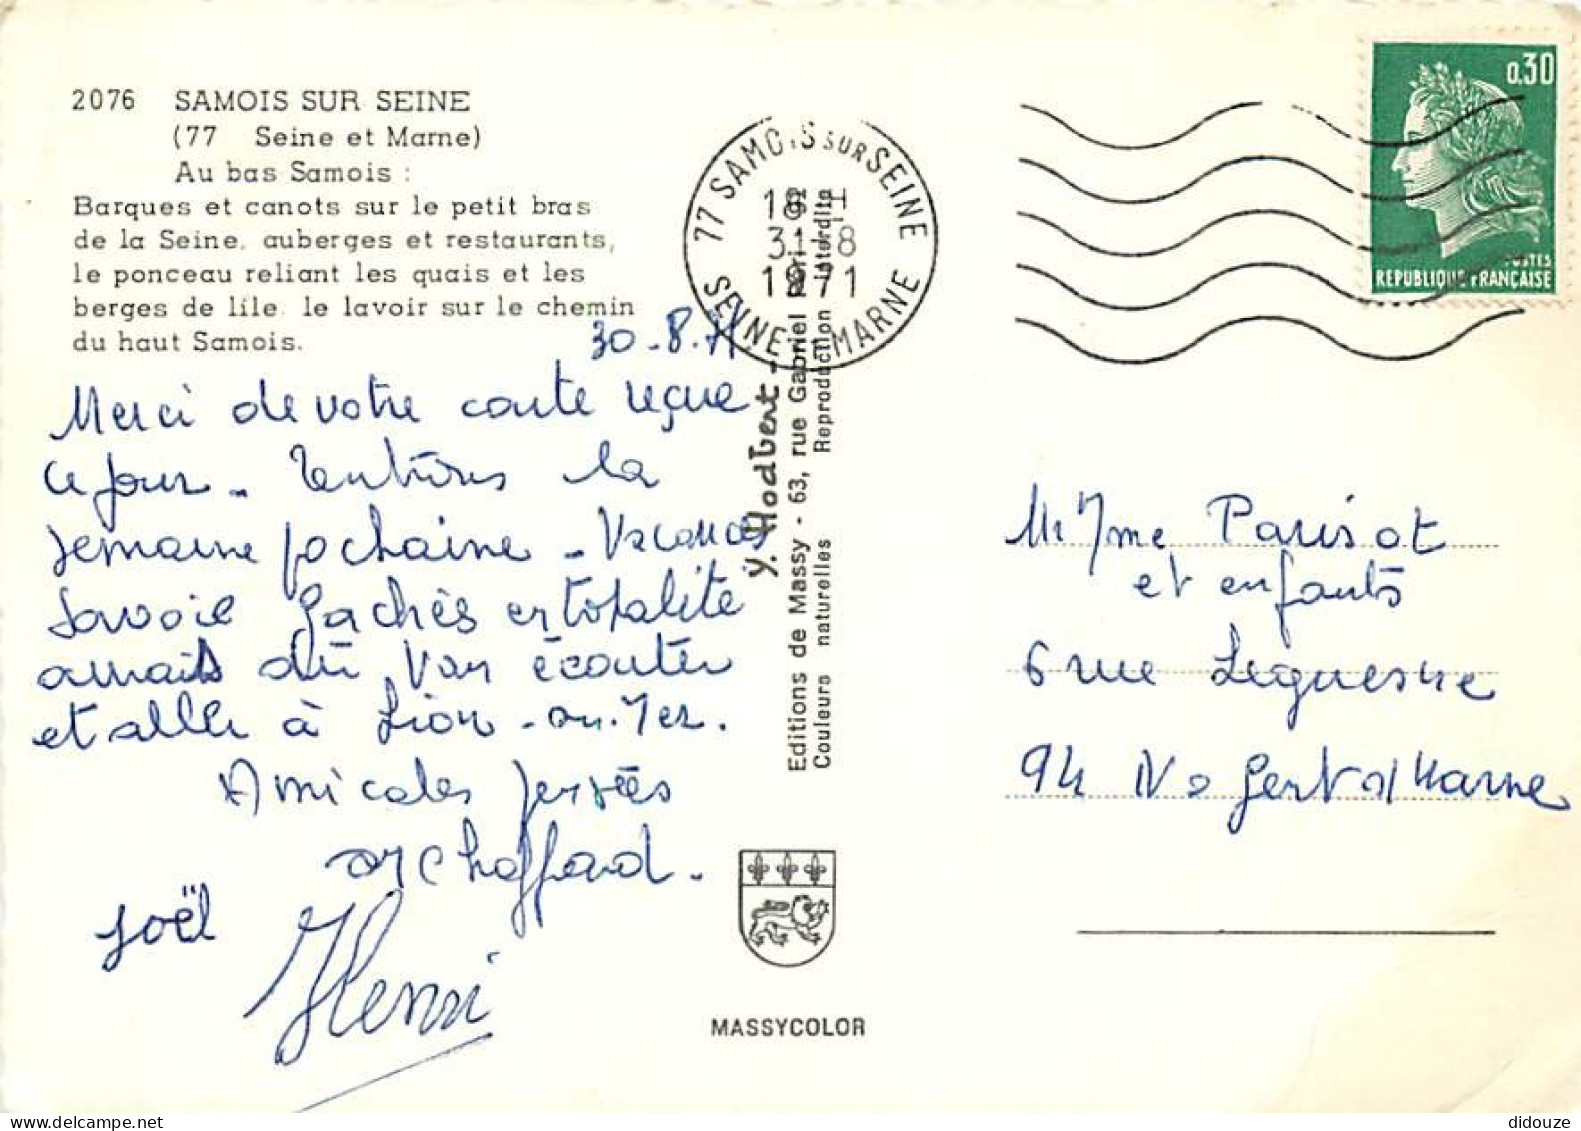 2076 SAMOIS SUR SEINE
(77 Seine et Marne)
Au bas Samois :
Barques et canots sur le petit bras
de la Seine, auberges et restaurants,
le ponceau reliant les quais et les
berges de l'ile, le lavoir sur le chemin
du haut Samois.
30-8-71
Merci de votre carte reçue
ce jour - rentrons la
semaine prochaine - Vacances
Savoie gachés en totalité
amais du Var écourter
et aller à Lion-sur-Mer.
Amicales pensées
Joël
Henri
Y. Hodbert -
Editions de Massy - 63, rue Gabriel Péri
Couleurs naturelles Reproduction interdite
MASSYCOLOR
77 SAMOIS SUR SEINE
18 H
31-8
1971
SEINE-ET-MARNE
0,30
POSTES
REPUBLIQUE FRANÇAISE
Mr Mme Parisot
et enfants
6 rue Lequesne
94 Nogent s/ Marne
didouze